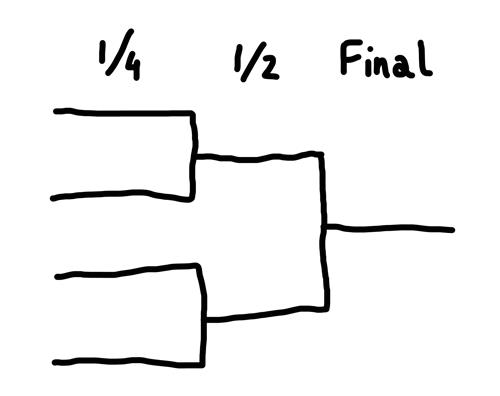 1/4 1/2 Final